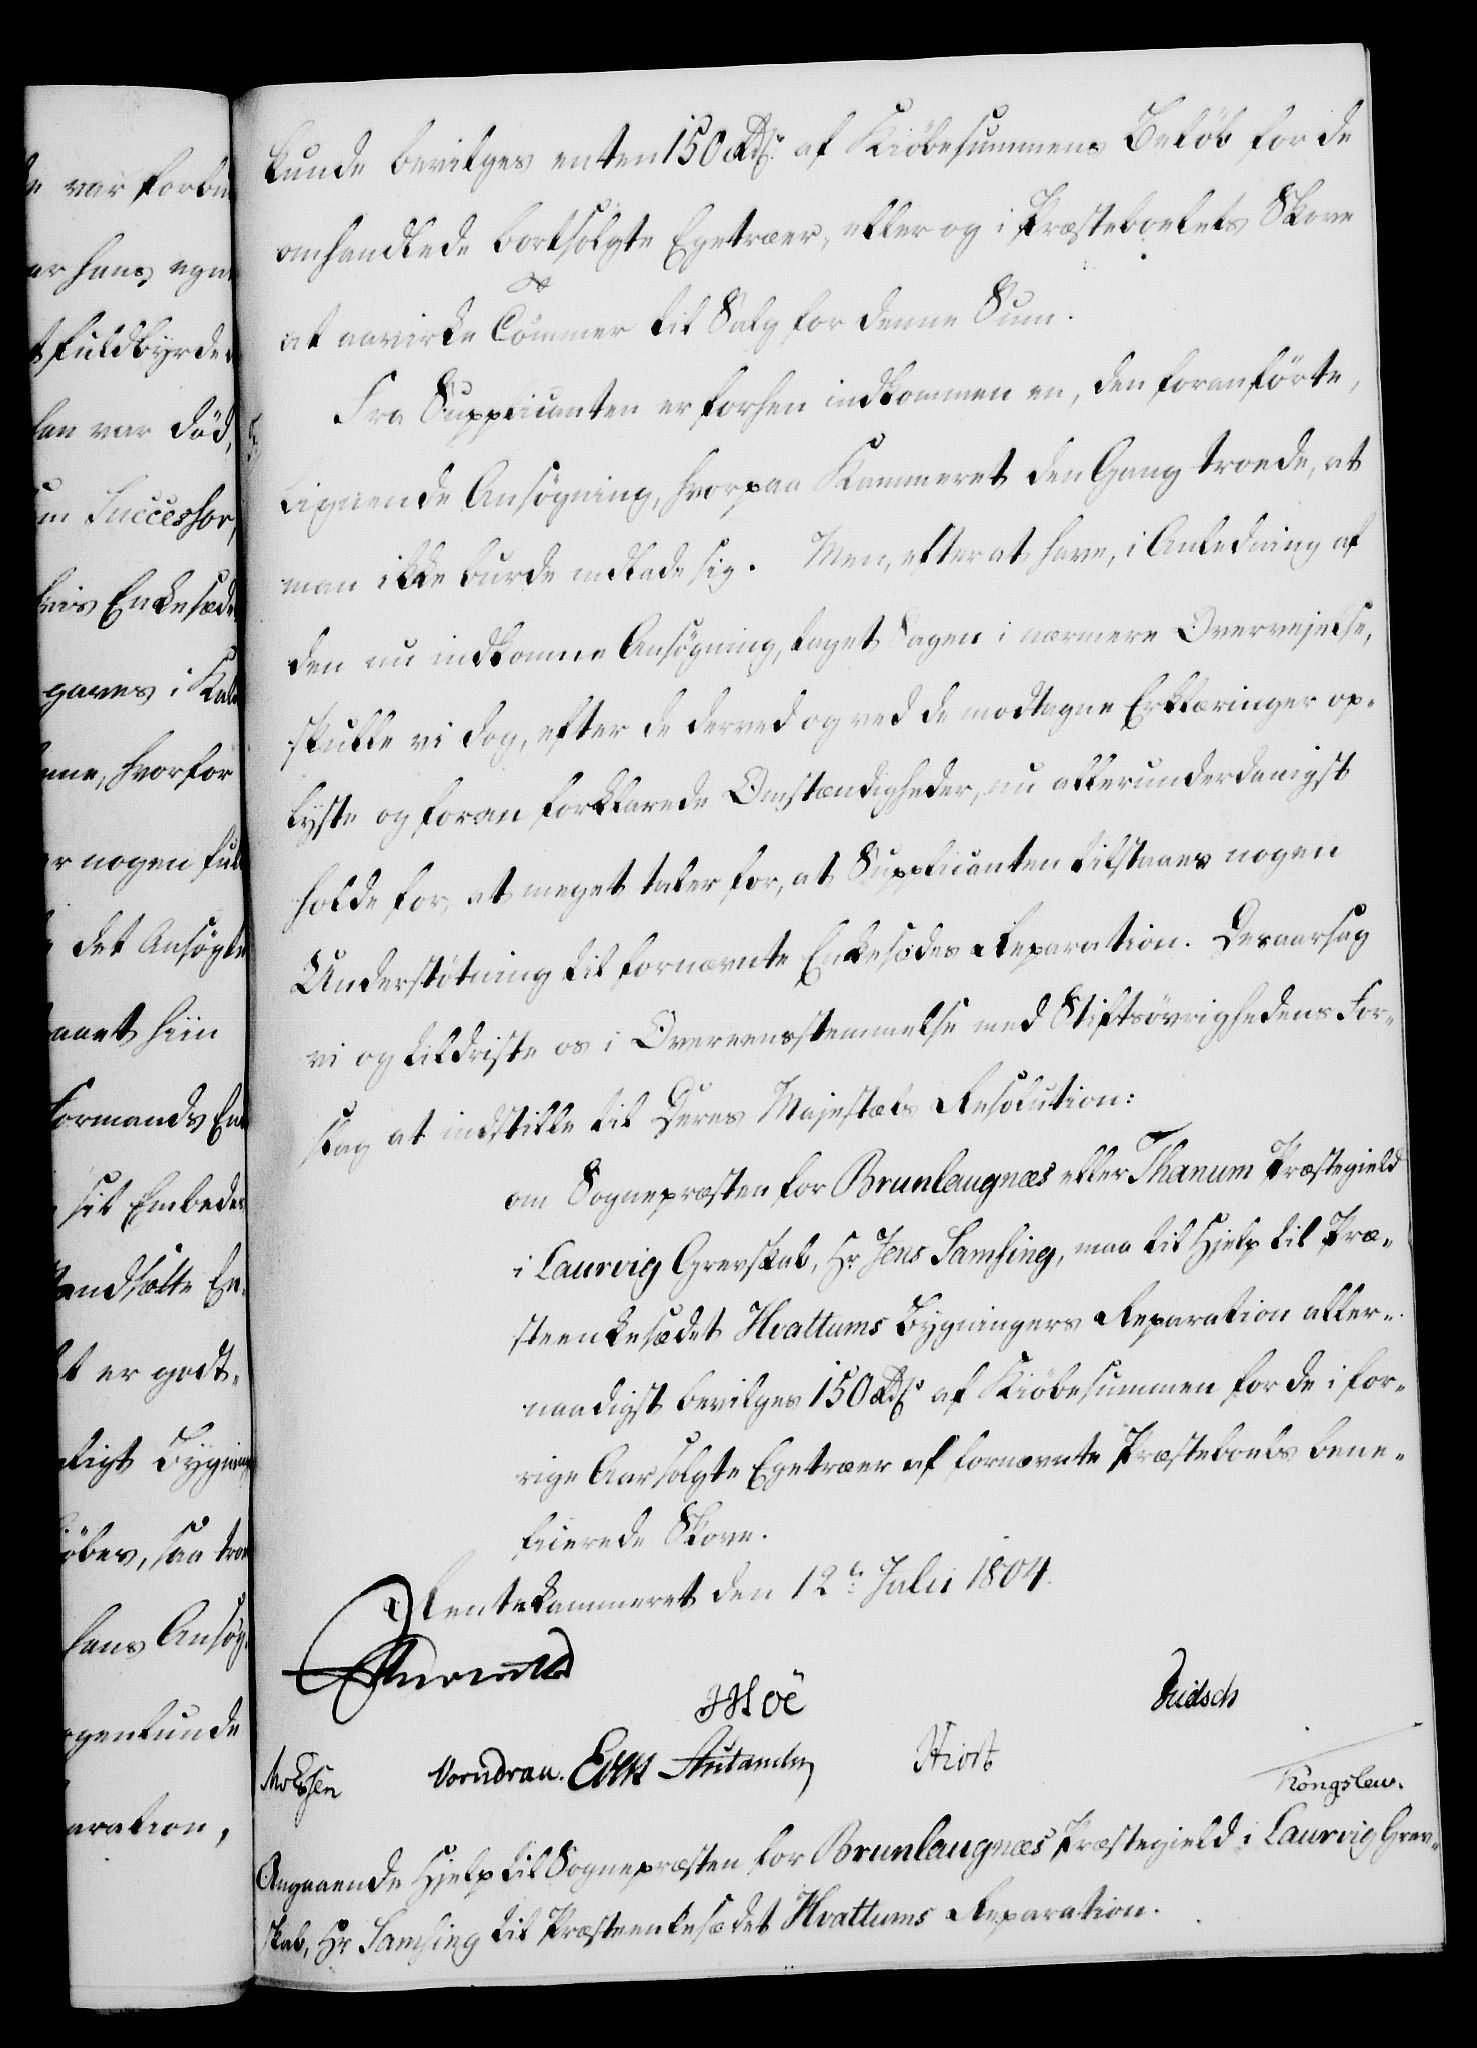 kunde bevilges enten 150 Rd. af Kiöbesummens Beløb for de
omhandlede bortsolgte Egetræer, eller og i Præsteboelets Skove
at aavirke Tömmer til Salg for denne Sum.
Fra Supplicanten er forhen indkommen en, den foranførte,
lignende Ansøgning, hvorpaa Kammeret den Gang troede, at
man ikke burde indlade sig. Men, efter at have, i Anledning af
den nu indkomne Ansøgning, taget Sagen i nærmere Overvejelse,
skulle vi dog, efter de derved og ved de modtagne Erklæringer op-
lyste og foran forklarede Omstændigheder, nu allerunderdanigst
holde for, at meget taler for, at Supplicanten tilstaaes nogen
Understøtning til fornævnte Enkesædes Reparation. Desaarsag
vi og tildriste os i Overeensstemmelse med Stiftsøvrighedens For-
slag at indstille til Deres Majestæts Resolution:
om Sognepræsten for Brunlaugnæs eller Thanum Præstegield
i Laurvig Grevskab, Hr Jens Samsing, maa til Hjelp til Præ-
steenkesædet Hvattums Bygningers Reparation aller-
naadigst bevilges 150 Rd. af Kiöbesummen for de i for-
rige Aar solgte Egetræer af fornævnte Præsteboels bene-
ficerede Skove.
Rentekammeret den 12te Julii 1804.
Moë
Vorndran.
Hiort
Kongslew.
Angaaende Hjelp til Sognepræsten for Brunlaugnæs Præstegield i Laurvig Grev-
skab, Hr Samsing til Præsteenkesædet Hvattums Reparation.
var forbu
hans egne
fuldbyrde
han var død,
Successor,
Enkesæde
gaves i Kal
hvorfor
nogen ful
det Ansøgte
hiin
Formands En
sit Embede
er godt-
Bygning
saa tro
hans Ansøg
aration,